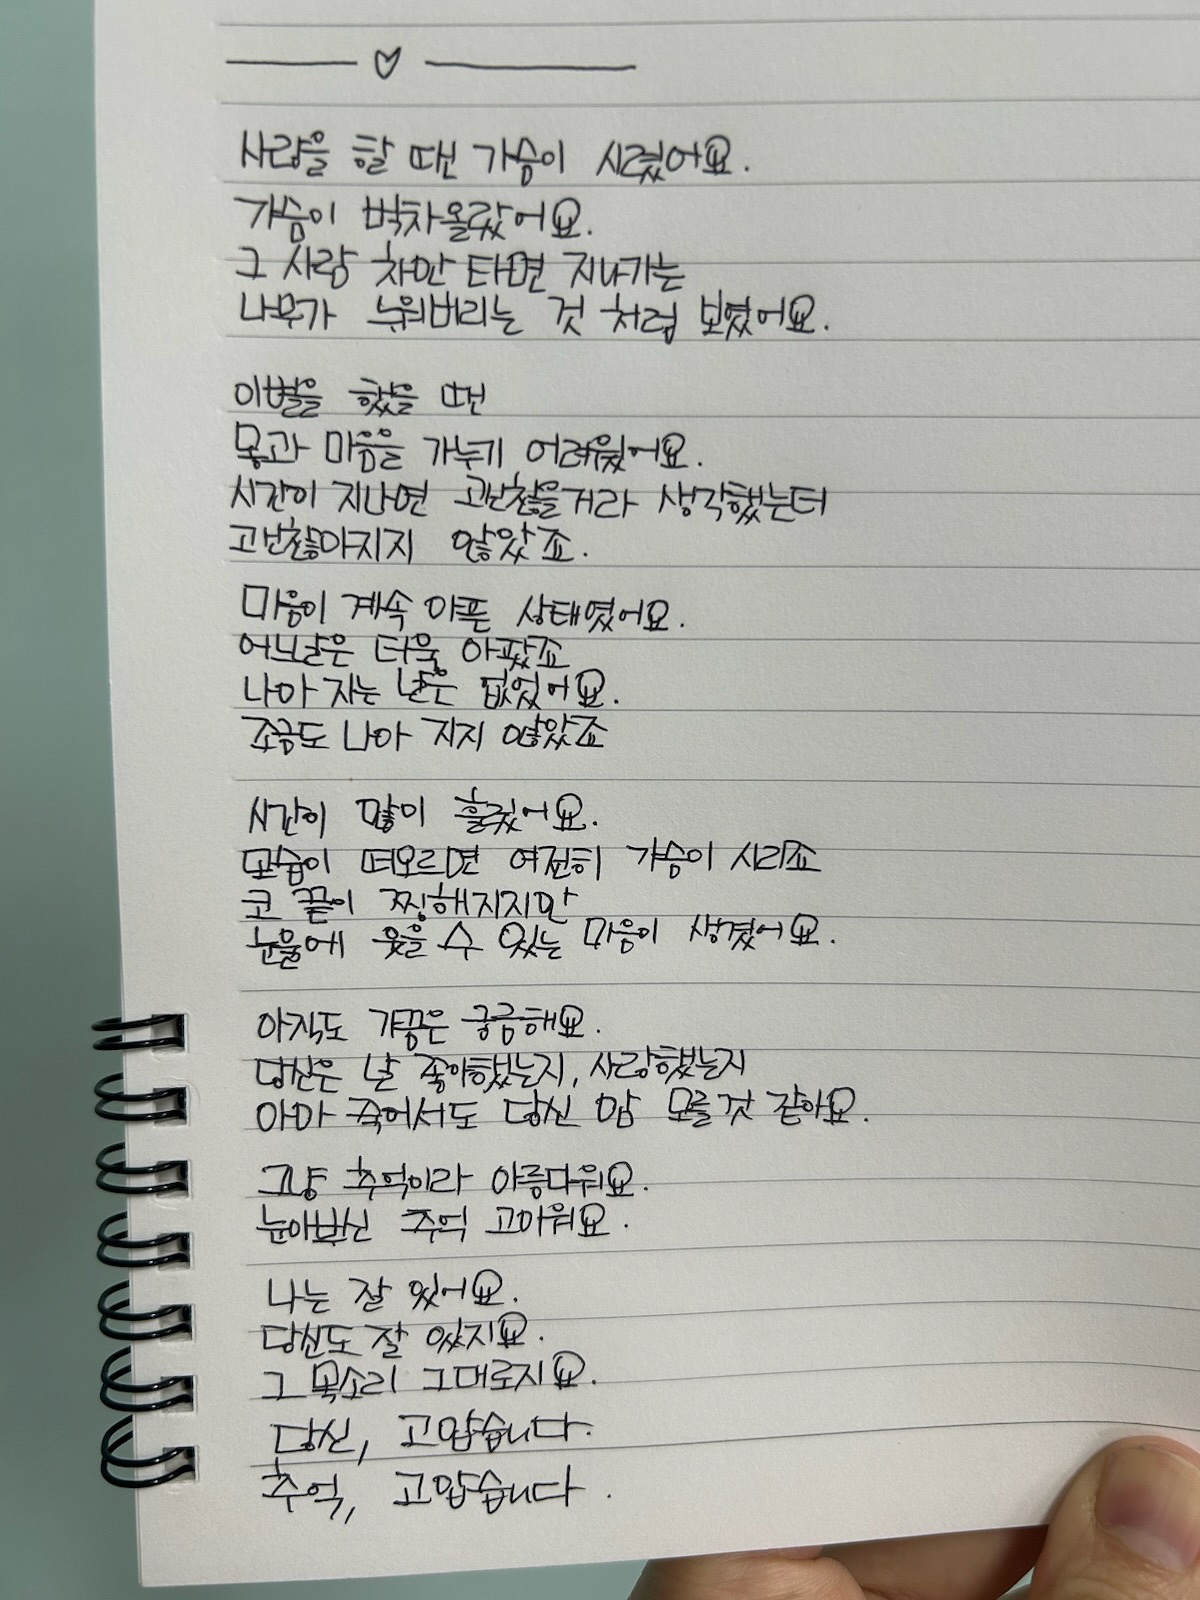 사랑을 할 땐 가슴이 시렸어요.
가슴이 벅차올랐어요.
그 사람 차만 타면 지나가는
나무가 누워버리는 것 처럼 보였어요.
이별을 했을 땐
몸과 마음을 가누기 어려웠어요.
시간이 지나면 괜찮을거라 생각했는데
괜찮아지지 않았죠.
마음이 계속 아픈 상태였어요.
어느날은 더욱 아팠죠
나아 지는 날은 없었어요.
조금도 나아 지지 않았죠
시간이 많이 흘렀어요.
모습이 떠오르면 여전히 가슴이 시리죠
코 끝이 찡해지지만
눈물에 웃을 수 있는 마음이 생겼어요.
아직도 가끔은 궁금해요.
당신은 날 좋아했는지, 사랑했는지
아마 죽어서도 당신 맘 모를것 같아요.
그냥 추억이라 아름다워요.
눈이부신 추억 고마워요.
나는 잘 있어요.
당신도 잘 있지요.
그 목소리 그대로지요.
당신, 고맙습니다.
추억, 고맙습니다.